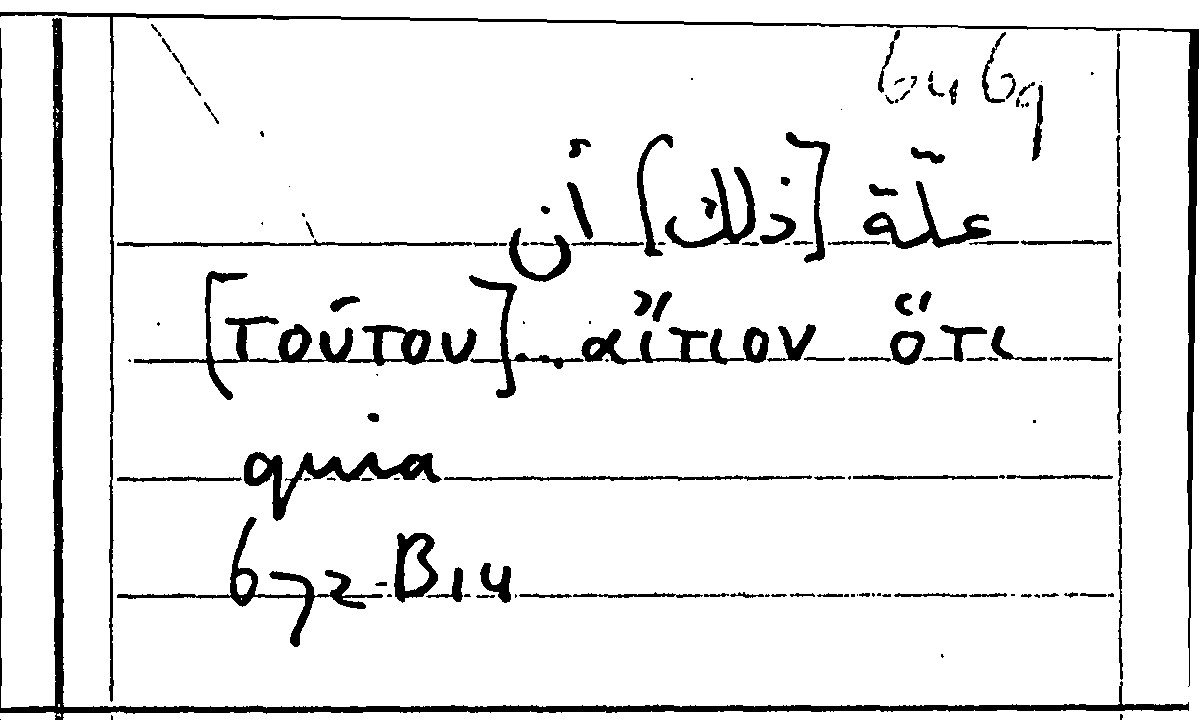 6469
علّة [ذلك] أن
[τούτου]... αἴτιον ὅτι
quia
672-B14